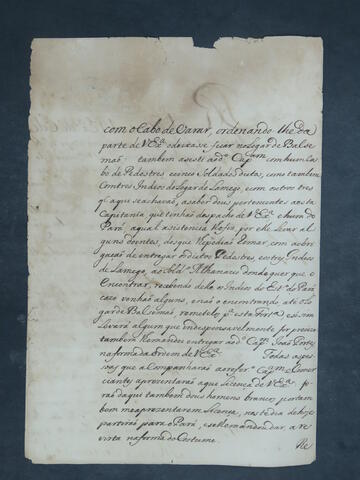 com o Cabo de Varar, ordenando lhe da
parte de V Exª o deixase ficar no Lugar de Balse
maõ: tambem asesti ao dº Capᵃᵐ com hum Ca
bo de Pedestres e cinco Soldados ditos, como tambem
Com tres Indios do Lugar de Lamego, com outros tres
qᵉ aqui se achavaõ, a saber dous pertencentes a esta
Capitania que tinhaõ despacho de V Exª e hum do
Pará, a qual asistencia lhe fis, por elle levar al
guns doentes, des que Ne podiaõ Remar, com a obri
gasaõ de entregar os ditos Pedestres, e os tres Indios
de Lamego, ao Alfᵉˢ Athanazio donde quer que o
Encontrar, recebendo delle os Indios do Estᵒ do Pará
cazo venhaõ alguns, e naõ o encontrando até o Lu
gar de Balsemaõ, remetelos pª esta Fortª e só sim
Levará algum que indespensavelmente for precizo
tambem lhe mandei entregar ao dº Capᵐ Joaõ Fortes
na forma da Ordem de V Exª Todas as pes
soas que a Companharaõ ao referᵒ Capᵃᵐ e Comer
ciante, aprezentaraõ aqui Licença de V Exª, fo
raõ daqui tambem dous homens brancos, por tam
bem me aprezentarem Licença, nas te dia de hoje
partiraõ para o Pará, e se lhe mandou dar a re
vista na forma do Costume.